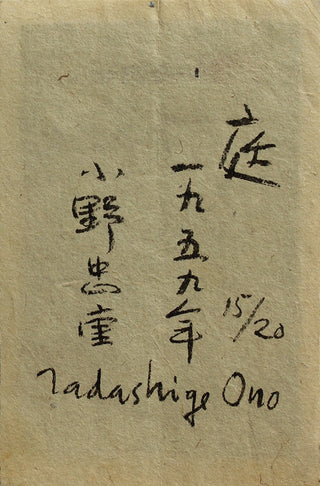 庭
一九五九年
小野忠重
15/20
Tadashige Ono